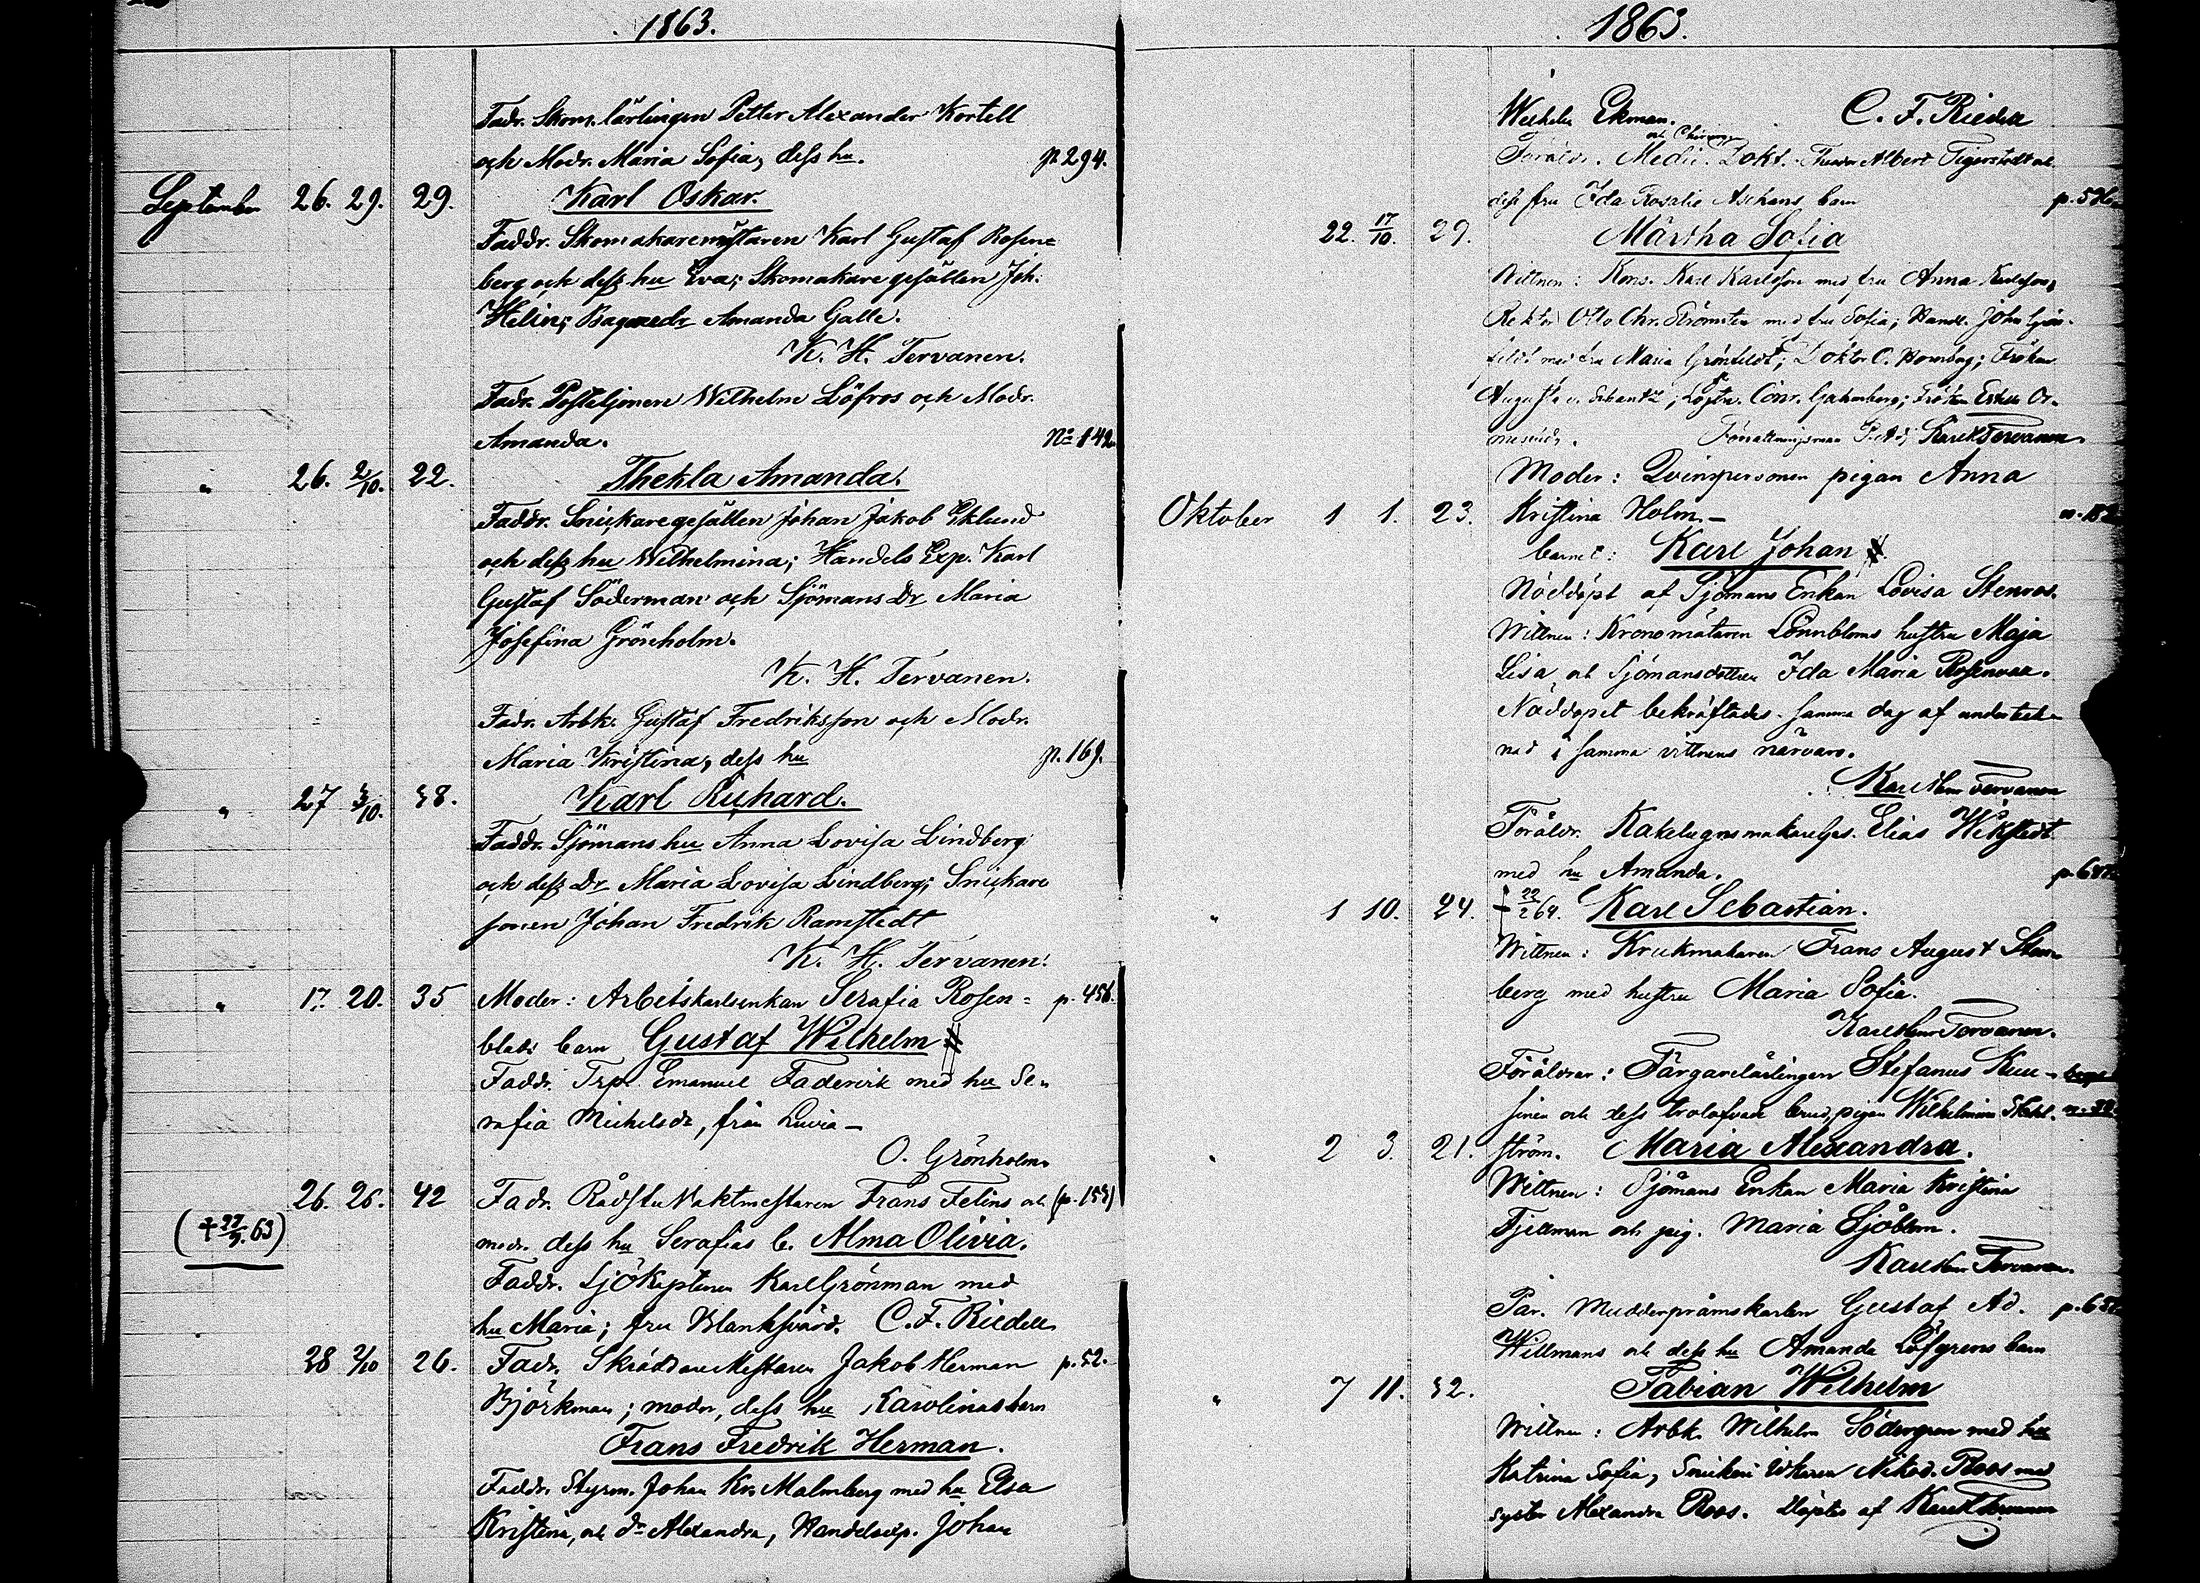 1863.
Fadr. Skom. lärlingen Petter Alexander Kortell
och Modr. Maria Sofia, dess hu. p. 294.
September 26. 29. 29. Karl Oskar.
Faddr. Skomakaremästaren Karl Gustaf Rosen=
berg och dess hu Eva; Skomakaregesällen Joh.
Helin; Bagaredr Amanda Galle.
K. H. Tervanen.
Fadr. Postiljonen Wilhelm Löfros och Modr.
Amanda. No 142
" 26. 2/10. 22. Thekla Amanda.
Faddr. Snickaregesällen Johan Jakob Eklund
och dess hu Wilhelmina; Handels Exp. Karl
Gustaf Söderman och Sjömans Dr Maria
Josefina Grönholm.
K. H. Tervanen.
Fadr. Arbk. Gustaf Fredriksson och Modr.
Maria Kristina, dess hu p. 169.
" 27 3/10. 38. Karl Richard.
Faddr. Sjömans hu Anna Lovisa Lindberg
och dess Dr Maria Lovisa Lindberg; Snickare
sonen Johan Fredrik Ramstedt
K. H. Tervanen.
" 17. 20. 35 Moder: Arbetskarlsenkan Serafia Rosen= p. 456.
blads barn Gustaf Wilhelm #
Faddr. Trp. Emanuel Fadervik med hu Se-
rafia Michelsdr, från Luvia —
O. Grönholm
26. 26. 42 Fadr. Rådstu Vaktmestaren Frans Felins och (p. 153)
modr. dess hu Serafias b. Alma Olivia.
Faddr. Sjökaptenen Karl Grönman med
hu Maria; fru Blanksvärd. C. F. Riedell
28 2/10 26. Fadr. Skräddare Mestaren Jakob Herman p. 52.
Björkman; modr, dess hu Karolinas barn
Frans Fredrik Herman.
Faddr. Styrm. Johan Kr. Malmberg med hu Elsa
Kristina, och dr Alexandra, Handelsexp. Johan
1863.
Wilhelm Ekman. C. F. Riedell
och Chirurgie
Föräldr. Medic. Dokt. Albert Tigerstedt och
dess fru Ida Rosalie Aschans barn
22. 17/10. 29. Märtha Sofia
Wittnen: Kons. Karl Karlsson med fru Anna Karlsson,
Rektor Otto Chr. Strömsten med fru Sofia; Handl. John Grön-
feldt med fru Maria Grönfeldt; Doktor O. Fröken
Augusta Conr. Fröken
Karl H Tervanen
Moder: Qvinspersonen pigan Anna
Oktober 1 1. 23. Kristina Holm. —
barnet: Karl Johan #
Nöddöpt af Sjömans Enkan Lovisa Stenros.
Wittnen: Kronomätaren Lönnbloms hustru Maja
Lisa och Sjömansdottren Ida Maria
Nöddopet bekräftades samma dag af underteck-
nad i samma vittnens närvaro.
Karl Hnr Tervanen
Föräldr. Kakelugnsmakareges. Elias Wikstedt
med hu Amanda.
" 1 10. 24. † 22/2 64. Karl Sebastian.
Wittnen: Krukmakaren Frans August Sten-
berg med hustru Maria Sofia.
Karl Hnr Tervanen.
Föräldrar: Färgarelärlingen Stefanus Kuu-
sinen och dess trolofvade brud, pigan Wilhelmina Stahl-
" 2 3. 21. ström. Maria Alexandra.
Wittnen: Sjömans Enkan Maria Kristina
Fjellman och pig. Maria Sjöblom.
Karl Hnr Tervanen.
Par. Mudderpråmskarlen Gustaf Ad.
Willmans och dess hu Amanda Löfgrens barn
" 7 11. 32. Fabian Wilhelm
Wittnen: Arbk. Wilhelm Södergren med hu
Katrina Sofia, Snickeri Nikod. Roos med
syster Alexandra Roos. Döptes af Karl H Tervanen